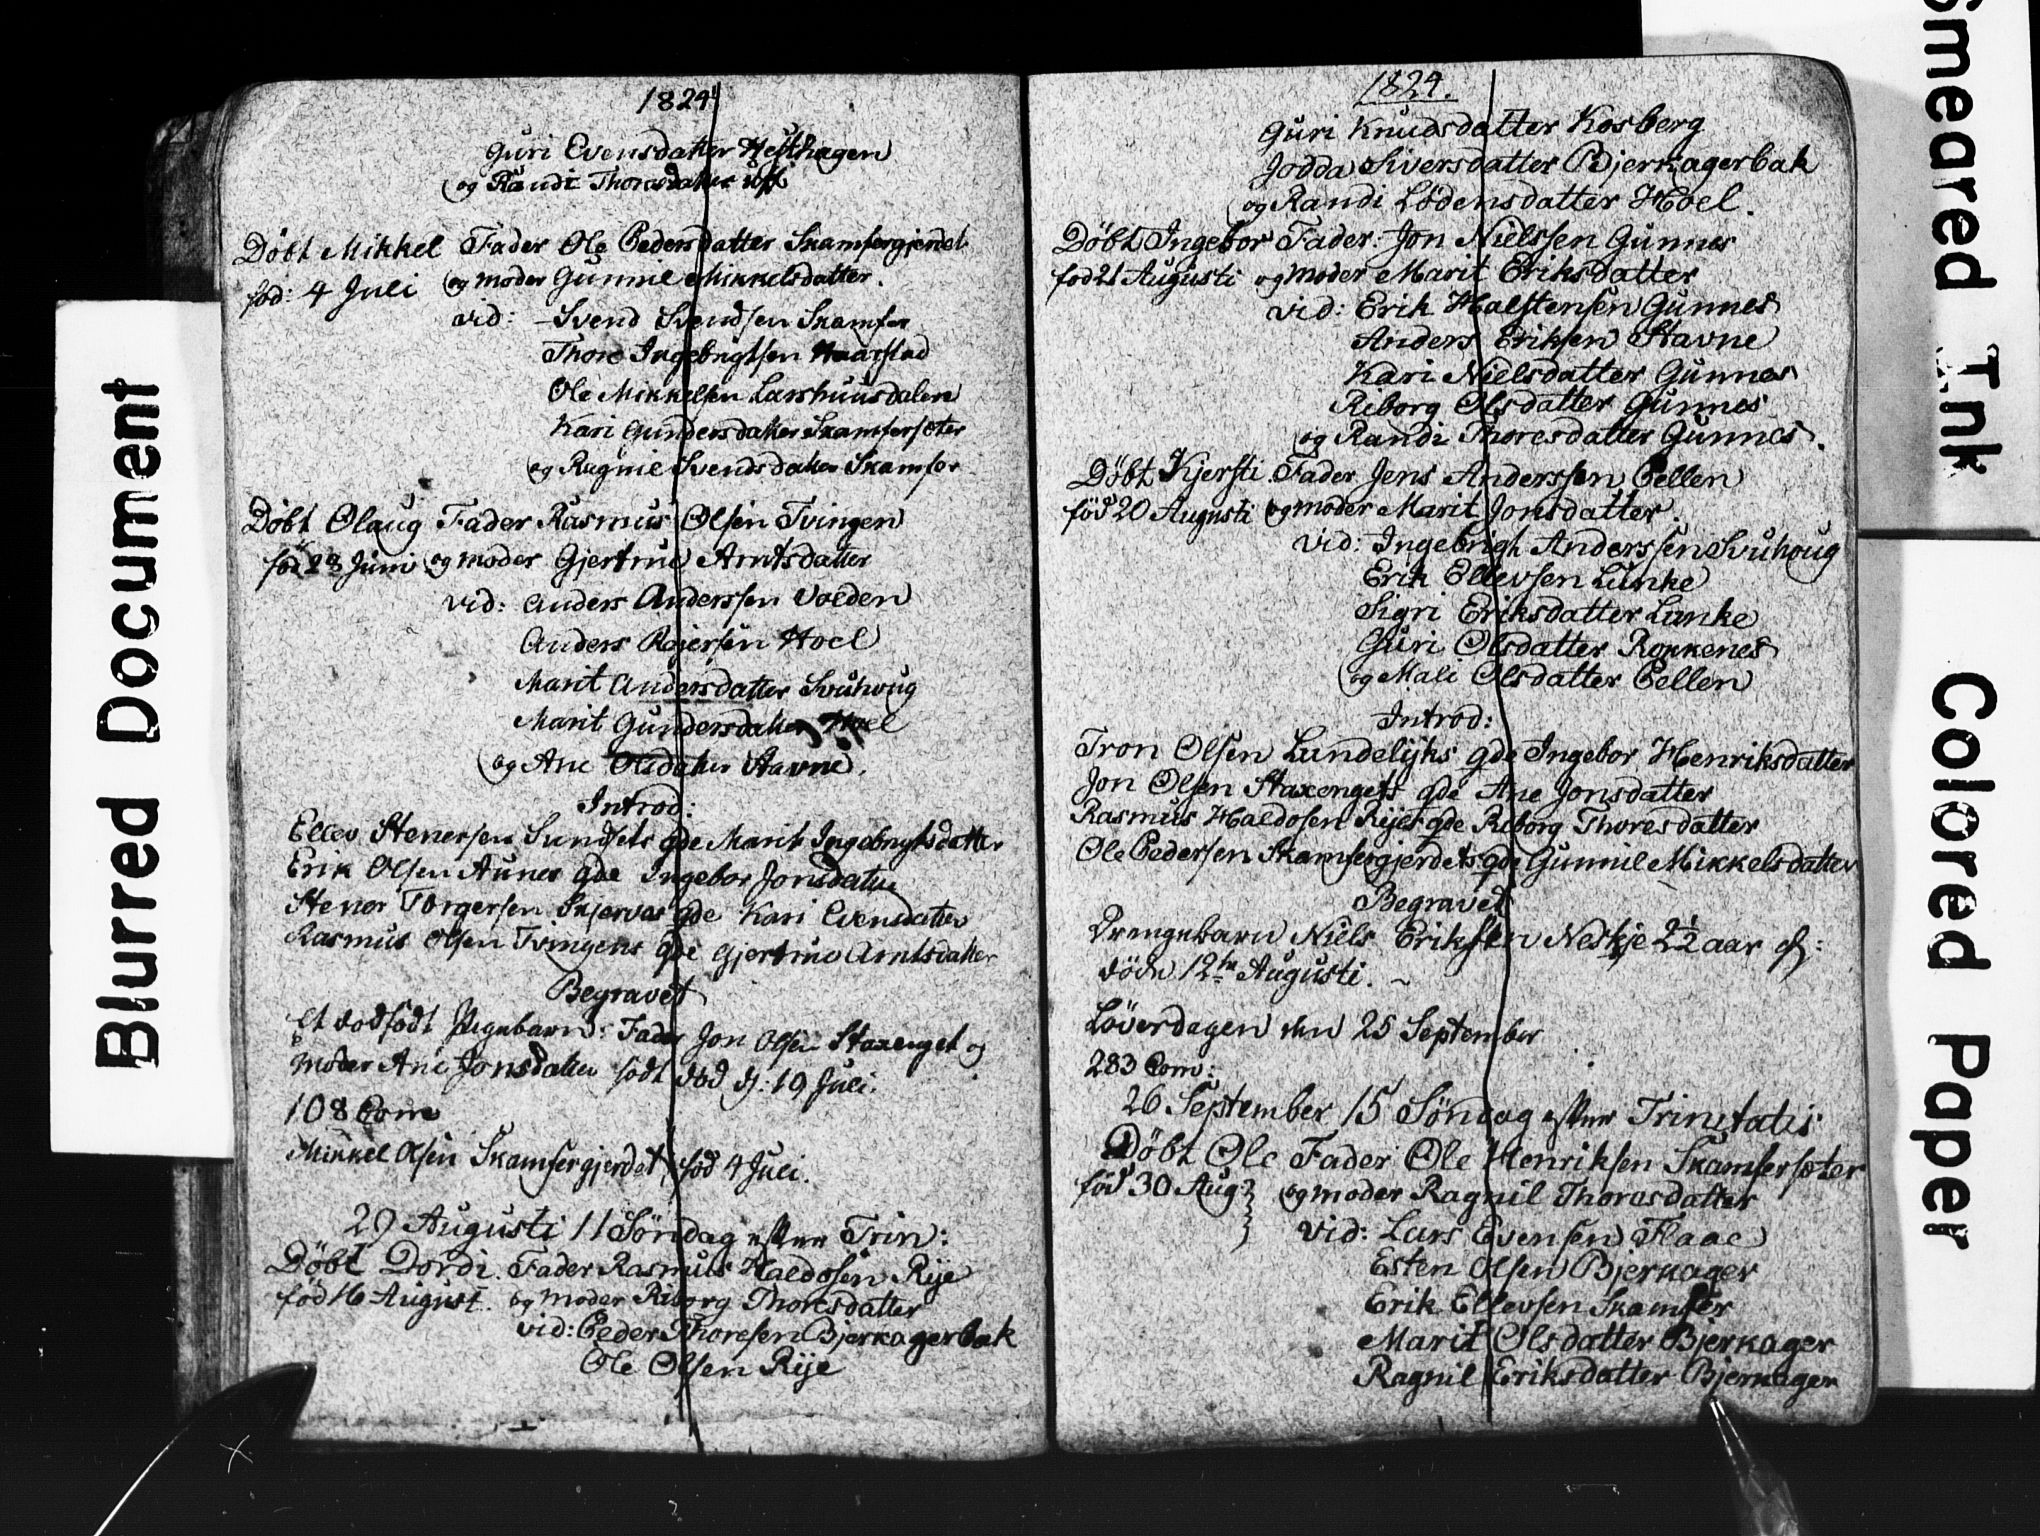 1824
Guri Evensdatter Hesthagen
og Randi Thoresdatter
Døbt Mikkel Fader Ole Pedersdatter Skamfergjerdet
fød: 4 Juli og moder Gunnil Mikkelsdatter.
vid: Svend Svendsen Skamfer
Thore Ingebrigtsen Haarstad
Ole Mikkelsen Larshuusdalen
Kari Gundersdatter Skamfersæter
og Ragnil Svendsdatter Skamfer
Døbt Olaug Fader Rasmus Olsen Tvingen
fød 28 Juni og moder Gjertrud Arntsdatter
vid: Anders Anderssen Volden
Anders Reiersen Hoel
Marit Andersdatter Svuhoug
Marit Gundersdatter Hoel
og Ane Olsdatter Stavne.
Introd:
Ellev Stenersen Sundsets qde Marit Ingebrigtsdatter
Erik Olsen Aunes qde Ingebor Jonsdatter
Stener Torgersen Skjervas qde Kari Evensdatter
Rasmus Olsen Tvingens qde Gjertrud Arntsdatter
Begravet
Et dødfødt Pigebarn: Fader Jon Olsen Staxenget og
moder Ane Jonsdatter født død d: 19 Juli.
108 Com
Mikkel Olsen Skamfergjerdet fød 4 Juli.
29 Augusti 11 Søndag efter Trin:
Døbt Dordi. Fader Rasmus Haldosen Rije
fød 16 August. og moder Riborg Thoresdatter
vid: Peder Thoresen Bjerkagerbak
Ole Olsen Rije
1824.
Guri Knudsdatter Kosberg
Jodda Siversdatter Bjerkagerbak
og Randi Lodensdatter Hoel.
Døbt Ingebor Fader: Jon Nielssen Gunnes
fød 21 Augusti og moder Marit Eriksdatter
vid: Erik Halstensen Gunnes
Anders Eriksen Stavne
Kari Nielsdatter Gunnes
Reborg Olsdatter Gunnes
og Randi Thoresdatter Gunnes.
Døbt Kjersti Fader Jens Anderssen Pellen
fød 20 Augusti og moder Marit Jonsdatter.
vid: Ingebrigt Anderssen Svuhoug
Erik Ellevsen Lunke
Sigri Eriksdatter Lunke
Guri Olsdatter Rokkenes
og Mali Olsdatter Pellen
Introd:
Tron Olsen Lundelyks qde Ingebor Henriksdatter
Jon Olsen Staxengets qde Ane Jonsdatter
Rasmus Haldosen Rijes qde Reborg Thoresdatter
Ole Pedersen Skamfergjerdets qde Gunnil Mikkelsdatter
Begravet
Drengebarn Niels Eriksen Neskje 2½ aar
døde 12te Augusti.
Løverdagen den 25 September
283 Com:
26 September 15 Søndag efter Trinitatis
Døbt Ole Fader Ole Henriksen Skamfersæter
fød 30 Aug og moder Ragnil Thoresdatter
vid: Lars Evensen Flaae
Esten Olsen Bjerkager
Erik Ellevsen Skamfer
Marit Olsdatter Bjerkager
Ragnil Eriksdatter Bjerkager
Blurred Document
Smeared Ink
Colored Paper